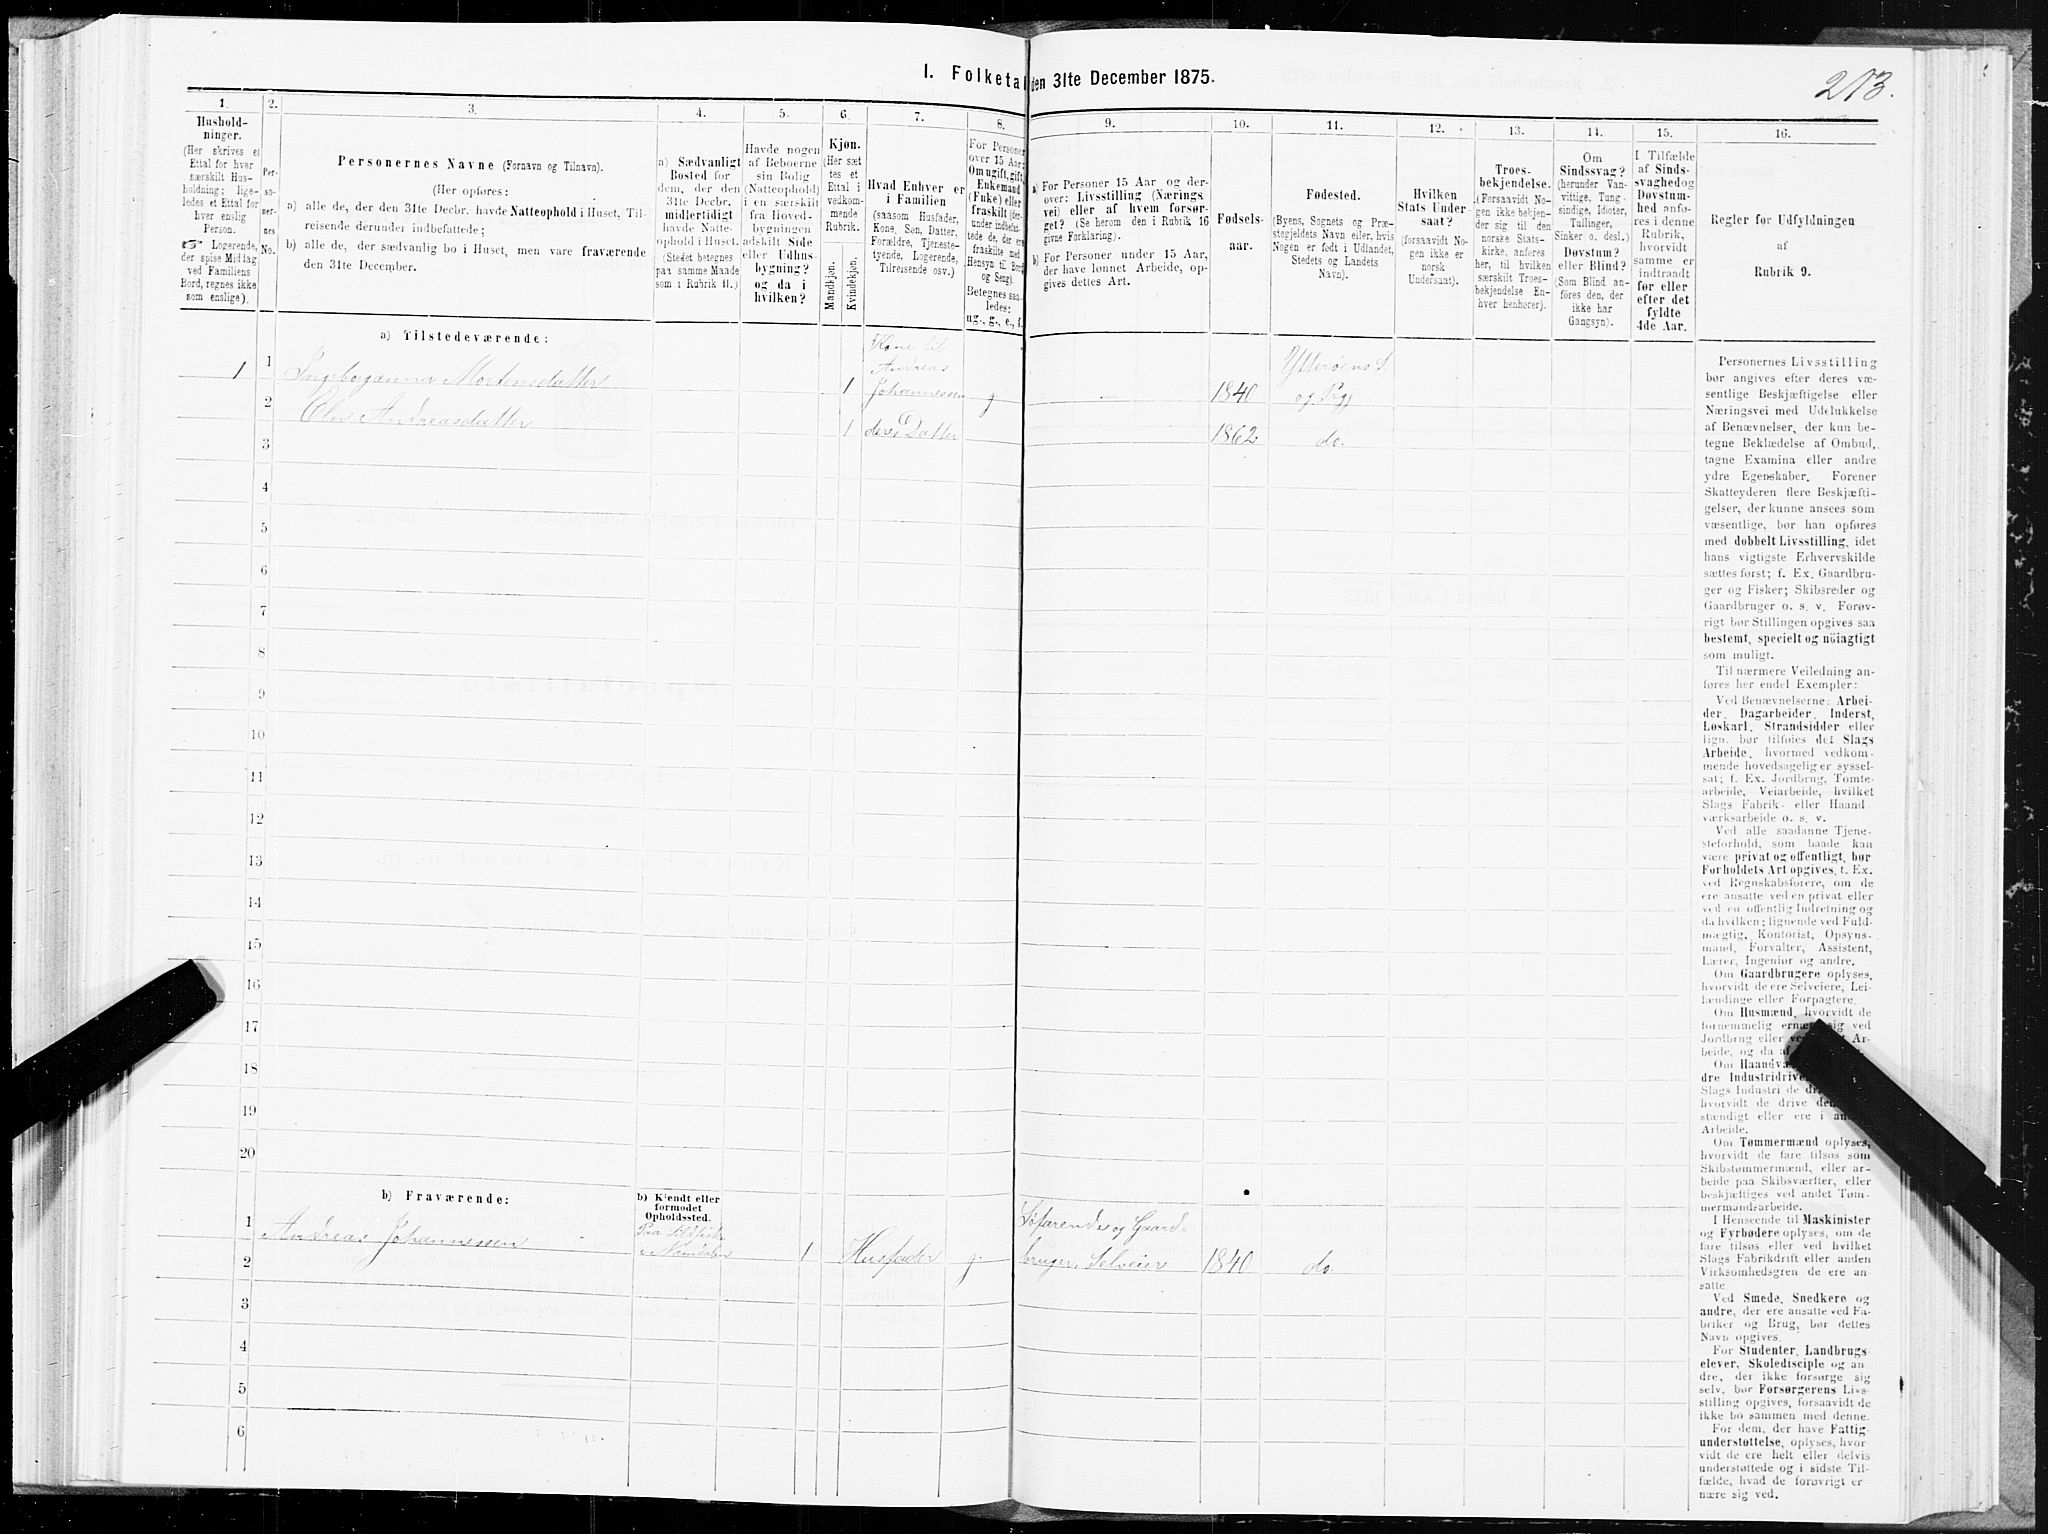 I. Folketal den 31te December 1875.
213.
1.
Hushold-
ninger.
(Her skrives et
Ettal for hver
særskilt Hus-
holdning; lige-
ledes et Ettal for
hver enslig
Person.
☞ Logerende,
der spise Middag
ved Familiens
Bord, regnes ikke
som enslige).
2.
Per-
so-
ner-
nes
No.
3.
Personernes Navne (Fornavn og Tilnavn).
(Her opføres:
a) alle de, der den 31te Decbr. havde Natteophold i Huset, Til-
reisende derunder indbefattede;
b) alle de, der sædvanlig bo i Huset, men vare fraværende
den 31te December.
4.
a) Sædvanligt
Bosted for
dem, der den
31te Decbr.
midlertidigt
havde Natte-
ophold i Huset.
(Stedet betegnes
paa samme Maade
som i Rubrik 11.)
5.
Havde nogen
af Beboerne
sin Bolig
(Natteophold)
i en særskilt
fra Hoved-
bygningen
adskilt Side
eller Udhus-
bygning?
og da i
hvilken?
6.
Kjøn.
(Her sæt
tes et
Ettal i
vedkom-
mende
Rubrik.
Mandkjøn.
Kvindekjøn.
7.
Hvad Enhver er
i Familien
(saasom Husfader,
Kone, Søn, Datter,
Forældre, Tjeneste-
tyende, Logerende,
Tilreisende osv.)
8.
For Personer
over 15 Aar:
Om ugift, gift,
Enkemand
(Enke) eller
fraskilt (der-
under indbefat-
tede de, der ere
fraskilte med
Hensyn til Bord
og Seng).
Betegnes saa-
ledes:
ug., g., e., f.
9.
a) For Personer 15 Aar og der-
over: Livsstilling (Nærings
vei) eller af hvem forsør-
get? (Se herom den i Rubrik 16
givne Forklaring).
b) For Personer under 15 Aar,
der have lønnet Arbeide, op-
gives dettes Art.
10.
Fødsels-
aar.
11.
Fødested.
(Byens, Sognets og Præ-
stegjeldets Navn eller, hvis
Nogen er født i Udlandet,
Stedets og Landets
Navn).
12.
Hvilken
Stats Under-
saat?
(forsaavidt No-
gen ikke er
norsk
Undersaat).
13.
Troes-
bekjendelse.
(Forsaavidt No-
gen ikke bekjen-
der sig til den
norske Stats-
kirke, anføres
her, til hvilken
særskilt Troes-
bekjendelse En-
hver henhører).
14.
Om
Sindssvag?
(herunder Van-
vittige, Tung-
sindige, Idioter,
Tullinger,
Sinker o. desl.)
Døvstum?
eller Blind?
(Som Blind an-
føres den, der
ikke har
Gangsyn).
15.
I Tilfælde
af Sinds-
svaghed og
Døvstum-
hed anfø-
res i denne
Rubrik,
hvorvidt
samme er
indtraadt
før eller
efter det
fyldte
4de Aar.
16.
Regler for Udfyldningen
af
Rubrik 9.
a) Tilstedeværende:
1 1 Ingeborganna Mortensdatter 1 Kone til Andreas Johannessen g 1840 Ytterøens S. og Prgj
2 Elen Andreasdatter 1 deres Datter 1862 do.
3
4
5
6
7
8
9
10
11
12
13
14
15
16
17
18
19
20
b) Fraværende:
b) Kjendt eller
formodet
Opholdssted.
1 Andreas Johannessen Paa Sildfiske i Namdalen 1 Husfader g. Søfarende og Gaard-
bruger, Selveier 1840 do.
2
3
4
5
6
Personernes Livsstilling
bør angives efter deres væ-
sentlige Beskjæftigelse eller
Næringsvei med Udelukkelse
af Benævnelser, der kun be-
tegne Beklædelse af Ombud,
tagne Examina eller andre
ydre Egenskaber. Forener
Skatteyderen flere Beskjæfti-
gelser, der kunne ansees som
væsentlige, bør han opføres
med dobbelt Livsstilling, idet
hans vigtigste Erhvervskilde
sættes først; f. Ex. Gaardbru-
ger og Fisker; Skibsreder og
Gaardbruger o. s. v. Forøv-
rigt bør Stillingen opgives saa
bestemt, specielt og nöiagtigt
som muligt.
Til nærmere Veiledning an-
føres her endel Exempler:
Ved Benævnelserne: Arbei-
der, Dagarbeider, Inderst,
Løskarl, Strandsidder eller
lign. bør tilføies det Slags
Arbeide, hvormed vedkom-
mende hovedsagelig er syssel-
sat; f. Ex. Jordbrug, Tomte-
arbeide, Veiarbeide, hvilket
Slags Fabrik- eller Haand
værksarbeide o. s. v.
Ved alle saadanne Tjene-
steforhold, som baade kan
være privat og offentligt, bør
Forholdets Art opgives, f. Ex.
ved Regnskabsførere, om de
ere ansatte ved en privat eller
ved en offentlig Indretning og
da hvilken; lignende ved Fuld-
mægtig, Kontorist, Opsyns-
mand, Forvalter, Assistent,
Lærer, Ingeniør og andre.
Om Gaardbrugere oplyses,
hvorvidt de ere Selveiere, Lei-
lændinge eller Forpagtere.
Om Husmænd, hvorvidt de
fornemmelig ernære sig ved
Jordbrug eller ved Ar-
beide, og da af
Om Haandv
dre Industridrive
Slags Industri de dri
hvorvidt de drive den
stændigt eller ere i an
Arbeide.
Om Tømmermænd oplyses,
hvorvidt de fare tilsøs som
Skibstømmermænd, eller ar-
beide paa Skibsværfter, eller
beskjæftiges ved andet Tøm-
mermandsarbeide.
I Henseende til Maskinister
og Fyrbødere oplyses, om de
fare tilsøs eller ved hvilket
Slags Fabrikdrift eller anden
Virksomhedsgren de ere an-
satte
Ved Smede, Snedkere og
andre, der ere ansatte ved Fa-
briker og Brug, bør dettes
Navn opgives.
For Studenter, Landbrugs-
elever, Skoledisciple og an-
dre, der ikke forsørge sig
selv, bør Forsørgerens Livs-
stilling opgives, forsaavidt de
ikke bo sammen med denne.
For dem, der have Fattig-
understøttelse, oplyses, hvor-
vidt de ere helt eller delvis
understøttede og i sidste Til-
fælde, hvad de forøvrigt er-
nære sig ved.